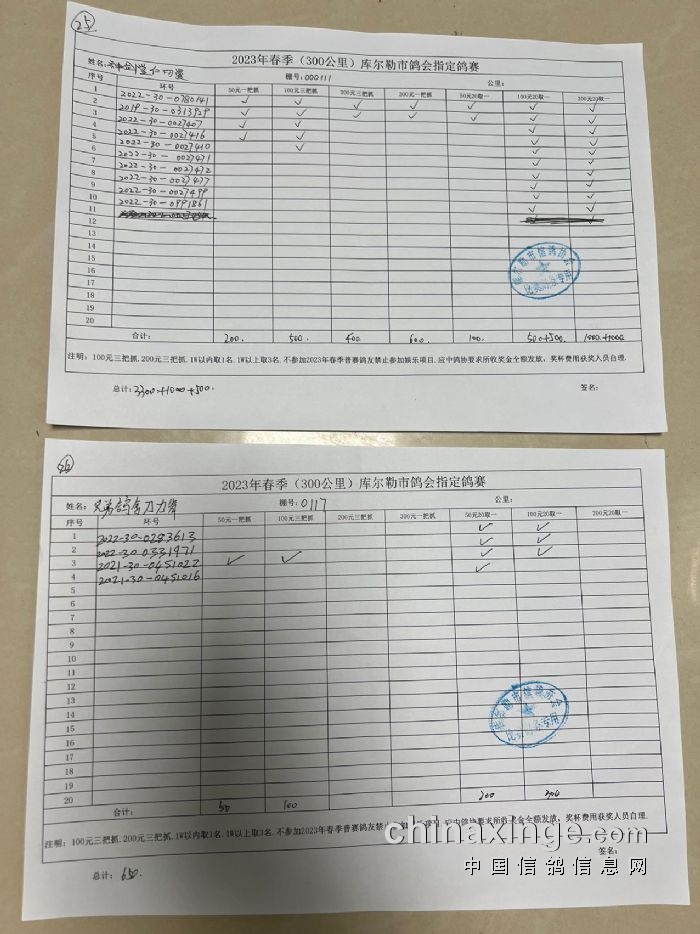 25
2023年春季（300公里）库尔勒市鸽会指定鸽赛
姓名: 棚号:000111 公里:
序号 环号 50元一把抓 100元三把抓 200元三把抓 200元一把抓 50元20取一 100元20取一 200元20取一
1 2022-30-0780141 ✓ ✓ ✓ ✓ ✓ ✓ ✓
2 2019-30-0313929 ✓ ✓ ✓ ✓ ✓ ✓ ✓
3 2022-30-0027407 ✓ ✓ ✓ ✓
4 2022-30-0027416 ✓ ✓ ✓ ✓
5 2022-30-0027410 ✓ ✓ ✓
6 2022-30-0027471 ✓ ✓
7 2022-30-0027472 ✓ ✓
8 2022-30-0027477 ✓ ✓
9 2022-30-0027499 ✓ ✓
10 2022-30-0991861 ✓ ✓
11
12
13
14
15
16
17
18
19
20
合计: 200. 500. 400. 600. 100. 500+500. 1000+1000
注明: 100元三把抓.200元三把抓.1W以内取1名.1W以上取3名.不参加2023年春季普赛鸽友禁止参加娱乐项目.应中鸽协要求所收奖金全额发放，奖杯费用获奖人员自理.
总计: 3300+1000+500. 签名:
库尔勒市信鸽协会
26
2023年春季（300公里）库尔勒市鸽会指定鸽赛
姓名: 棚号:0117 公里:
序号 环号 50元一把抓 100元三把抓 200元三把抓 200元一把抓 50元20取一 100元20取一 200元20取一
1 2022-30-0283613 ✓ ✓
2 2022-30-0331971 ✓ ✓
3 2021-30-0451022 ✓ ✓ ✓ ✓
4 2021-30-0451016 ✓
5
6
7
8
9
10
11
12
13
14
15
16
17
18
19
20
合计: 50 100 200 300
注明: 100元三把抓.200元三把抓.1W以内取1名.1W以上取3名.不参加2023年春季普赛鸽友禁止 应中鸽协要求所收奖金全额发放，奖杯费用获奖人员自理.
总计: 650. 签名:
库尔勒市信鸽协会
chinaxinge.com
中国信鸽信息网